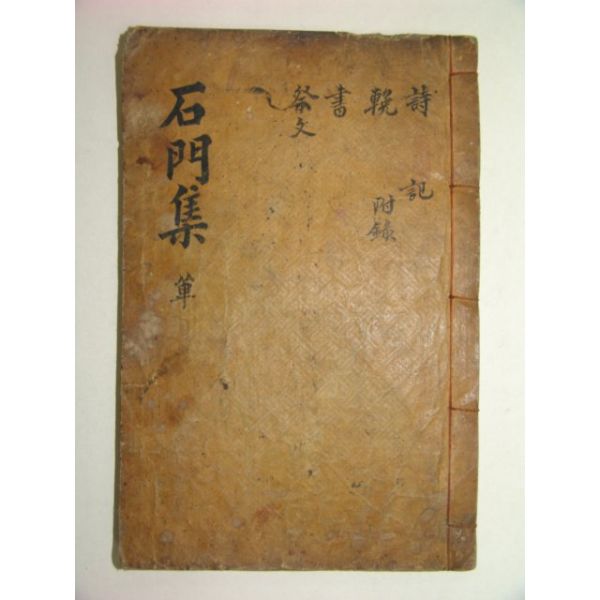 石門集 單
詩 記
輓 附錄
書
祭文